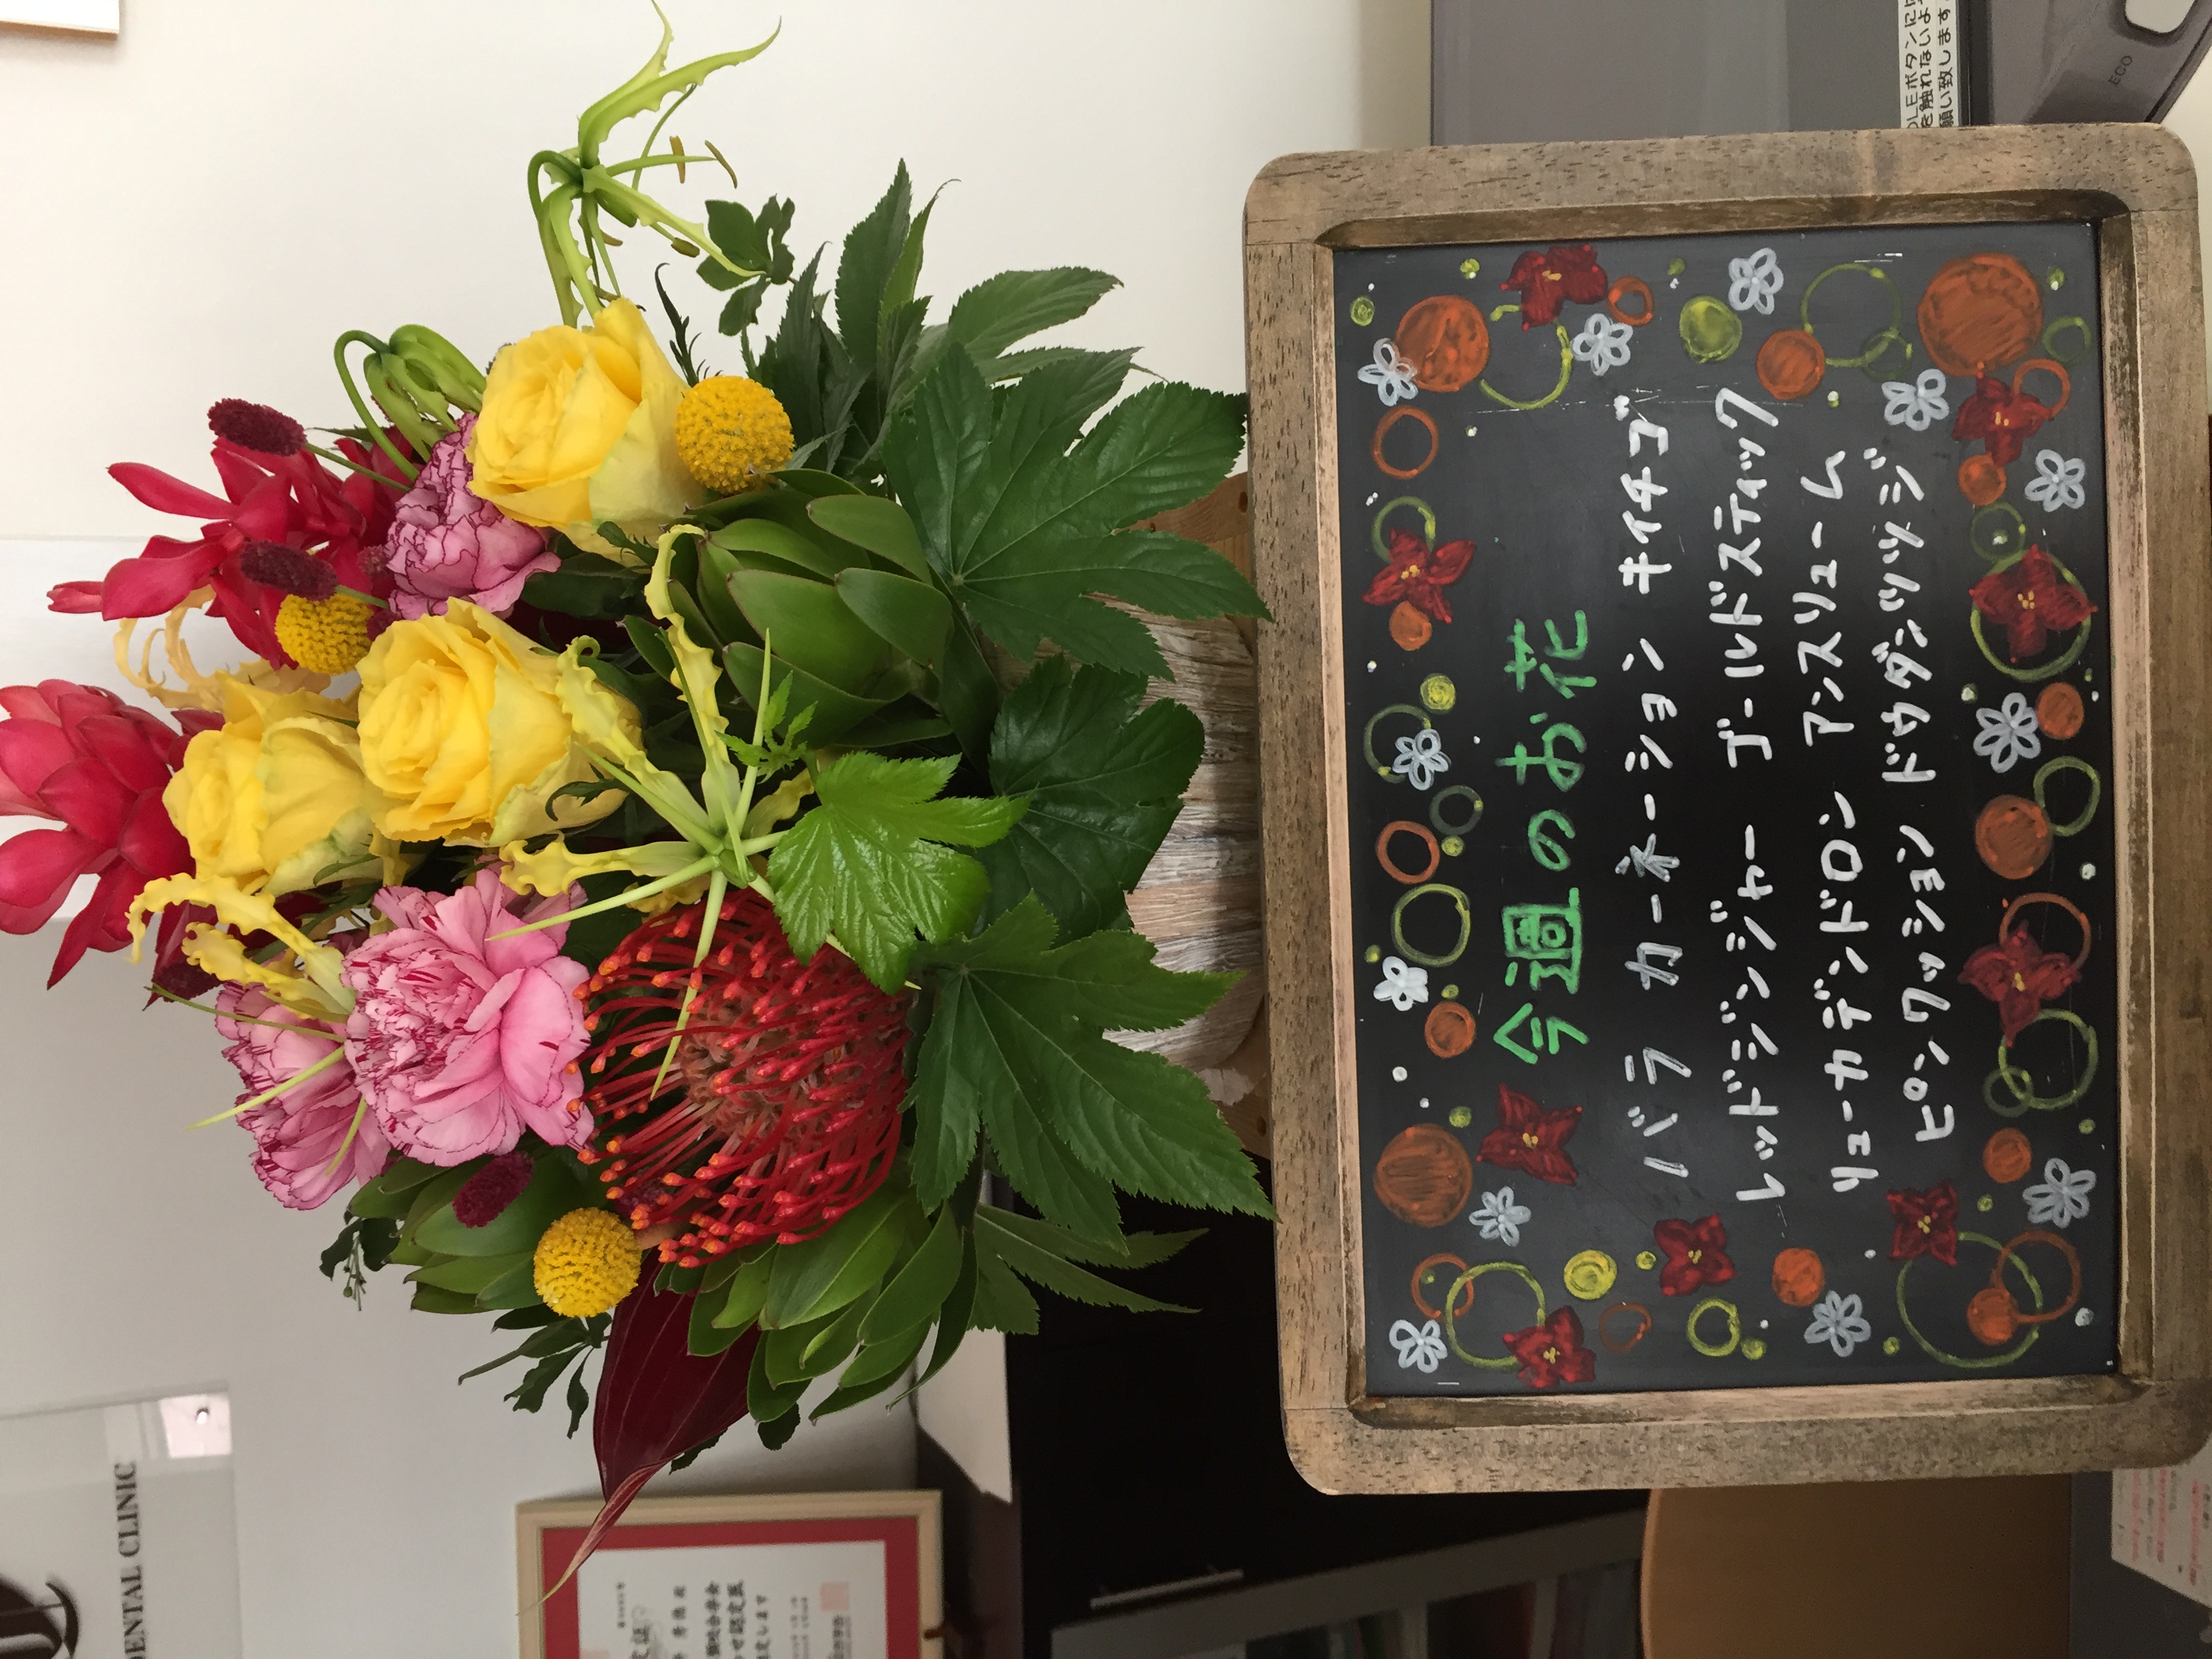 今週のお花
バラ カーネーション キイチゴ
レッドジンジャー ゴールドスティック
リューカデンドロン アンスリューム
ピンクッション ドウダンツツジ
DENTAL CLINIC
ECO